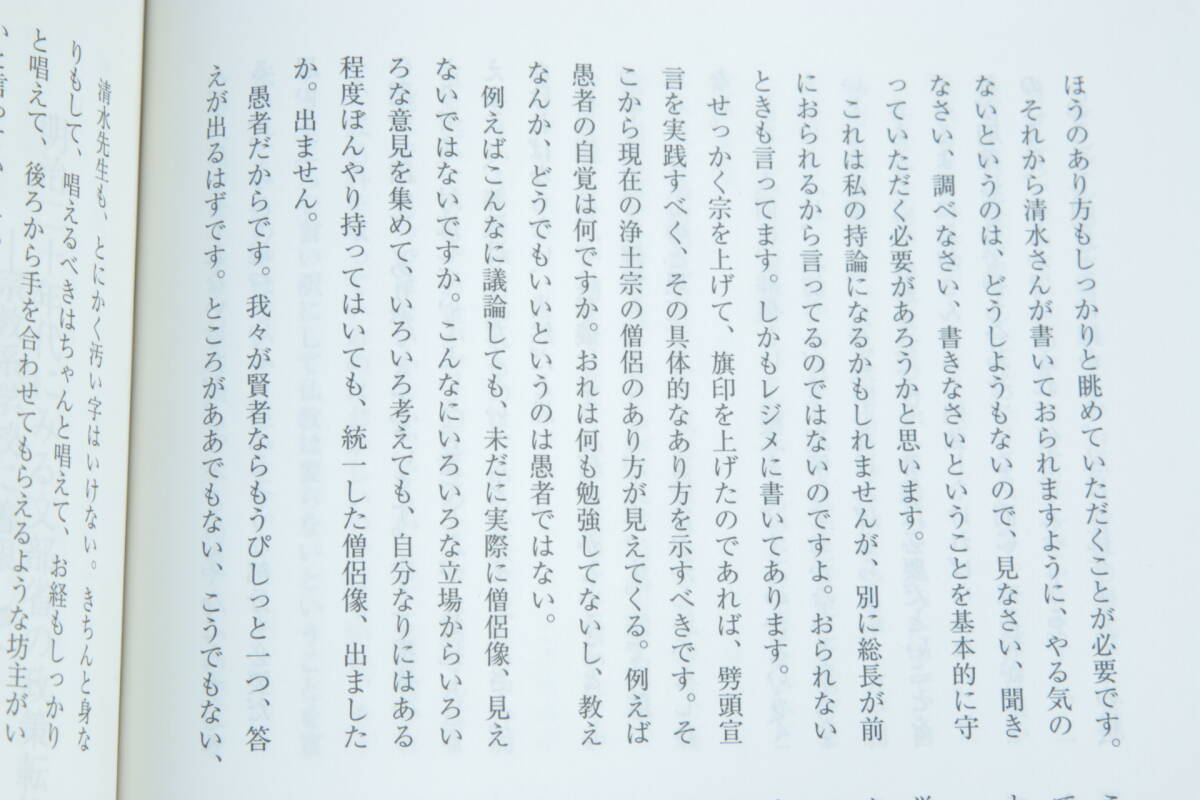 ほうのあり方もしっかりと眺めていただくことが必要です。
それから清水さんが書いておられますように、やる気の
ないというのは、どうしようもないので、見なさい、聞き
なさい、調べなさい、書きなさいということを基本的に守
っていただく必要があろうかと思います。
これは私の持論になるかもしれませんが、別に総長が前
におられるから言ってるのではないのですよ。おられない
ときも言ってます。しかもレジメに書いてあります。
せっかく宗を上げて、旗印を上げたのであれば、劈頭宣
言を実践すべく、その具体的なあり方を示すべきです。そ
こから現在の浄土宗の僧侶のあり方が見えてくる。例えば
愚者の自覚は何ですか。おれは何も勉強してないし、教え
なんか、どうでもいいというのは愚者ではない。
例えばこんなに議論しても、未だに実際に僧侶像、見え
ないではないですか。こんなにいろいろな立場からいろい
ろな意見を集めて、いろいろ考えても、自分なりにはある
程度ぼんやり持ってはいても、統一した僧侶像、出ました
か。出ません。
愚者だからです。我々が賢者ならもうぴしっと一つ、答
えが出るはずです。ところがああでもない、こうでもない、
清水先生も、とにかく汚い字はいけない。きちんと身な
りもして、唱えるべきはちゃんと唱えて、お経もしっかり
と唱えて、後ろから手を合わせてもらえるような坊主がい